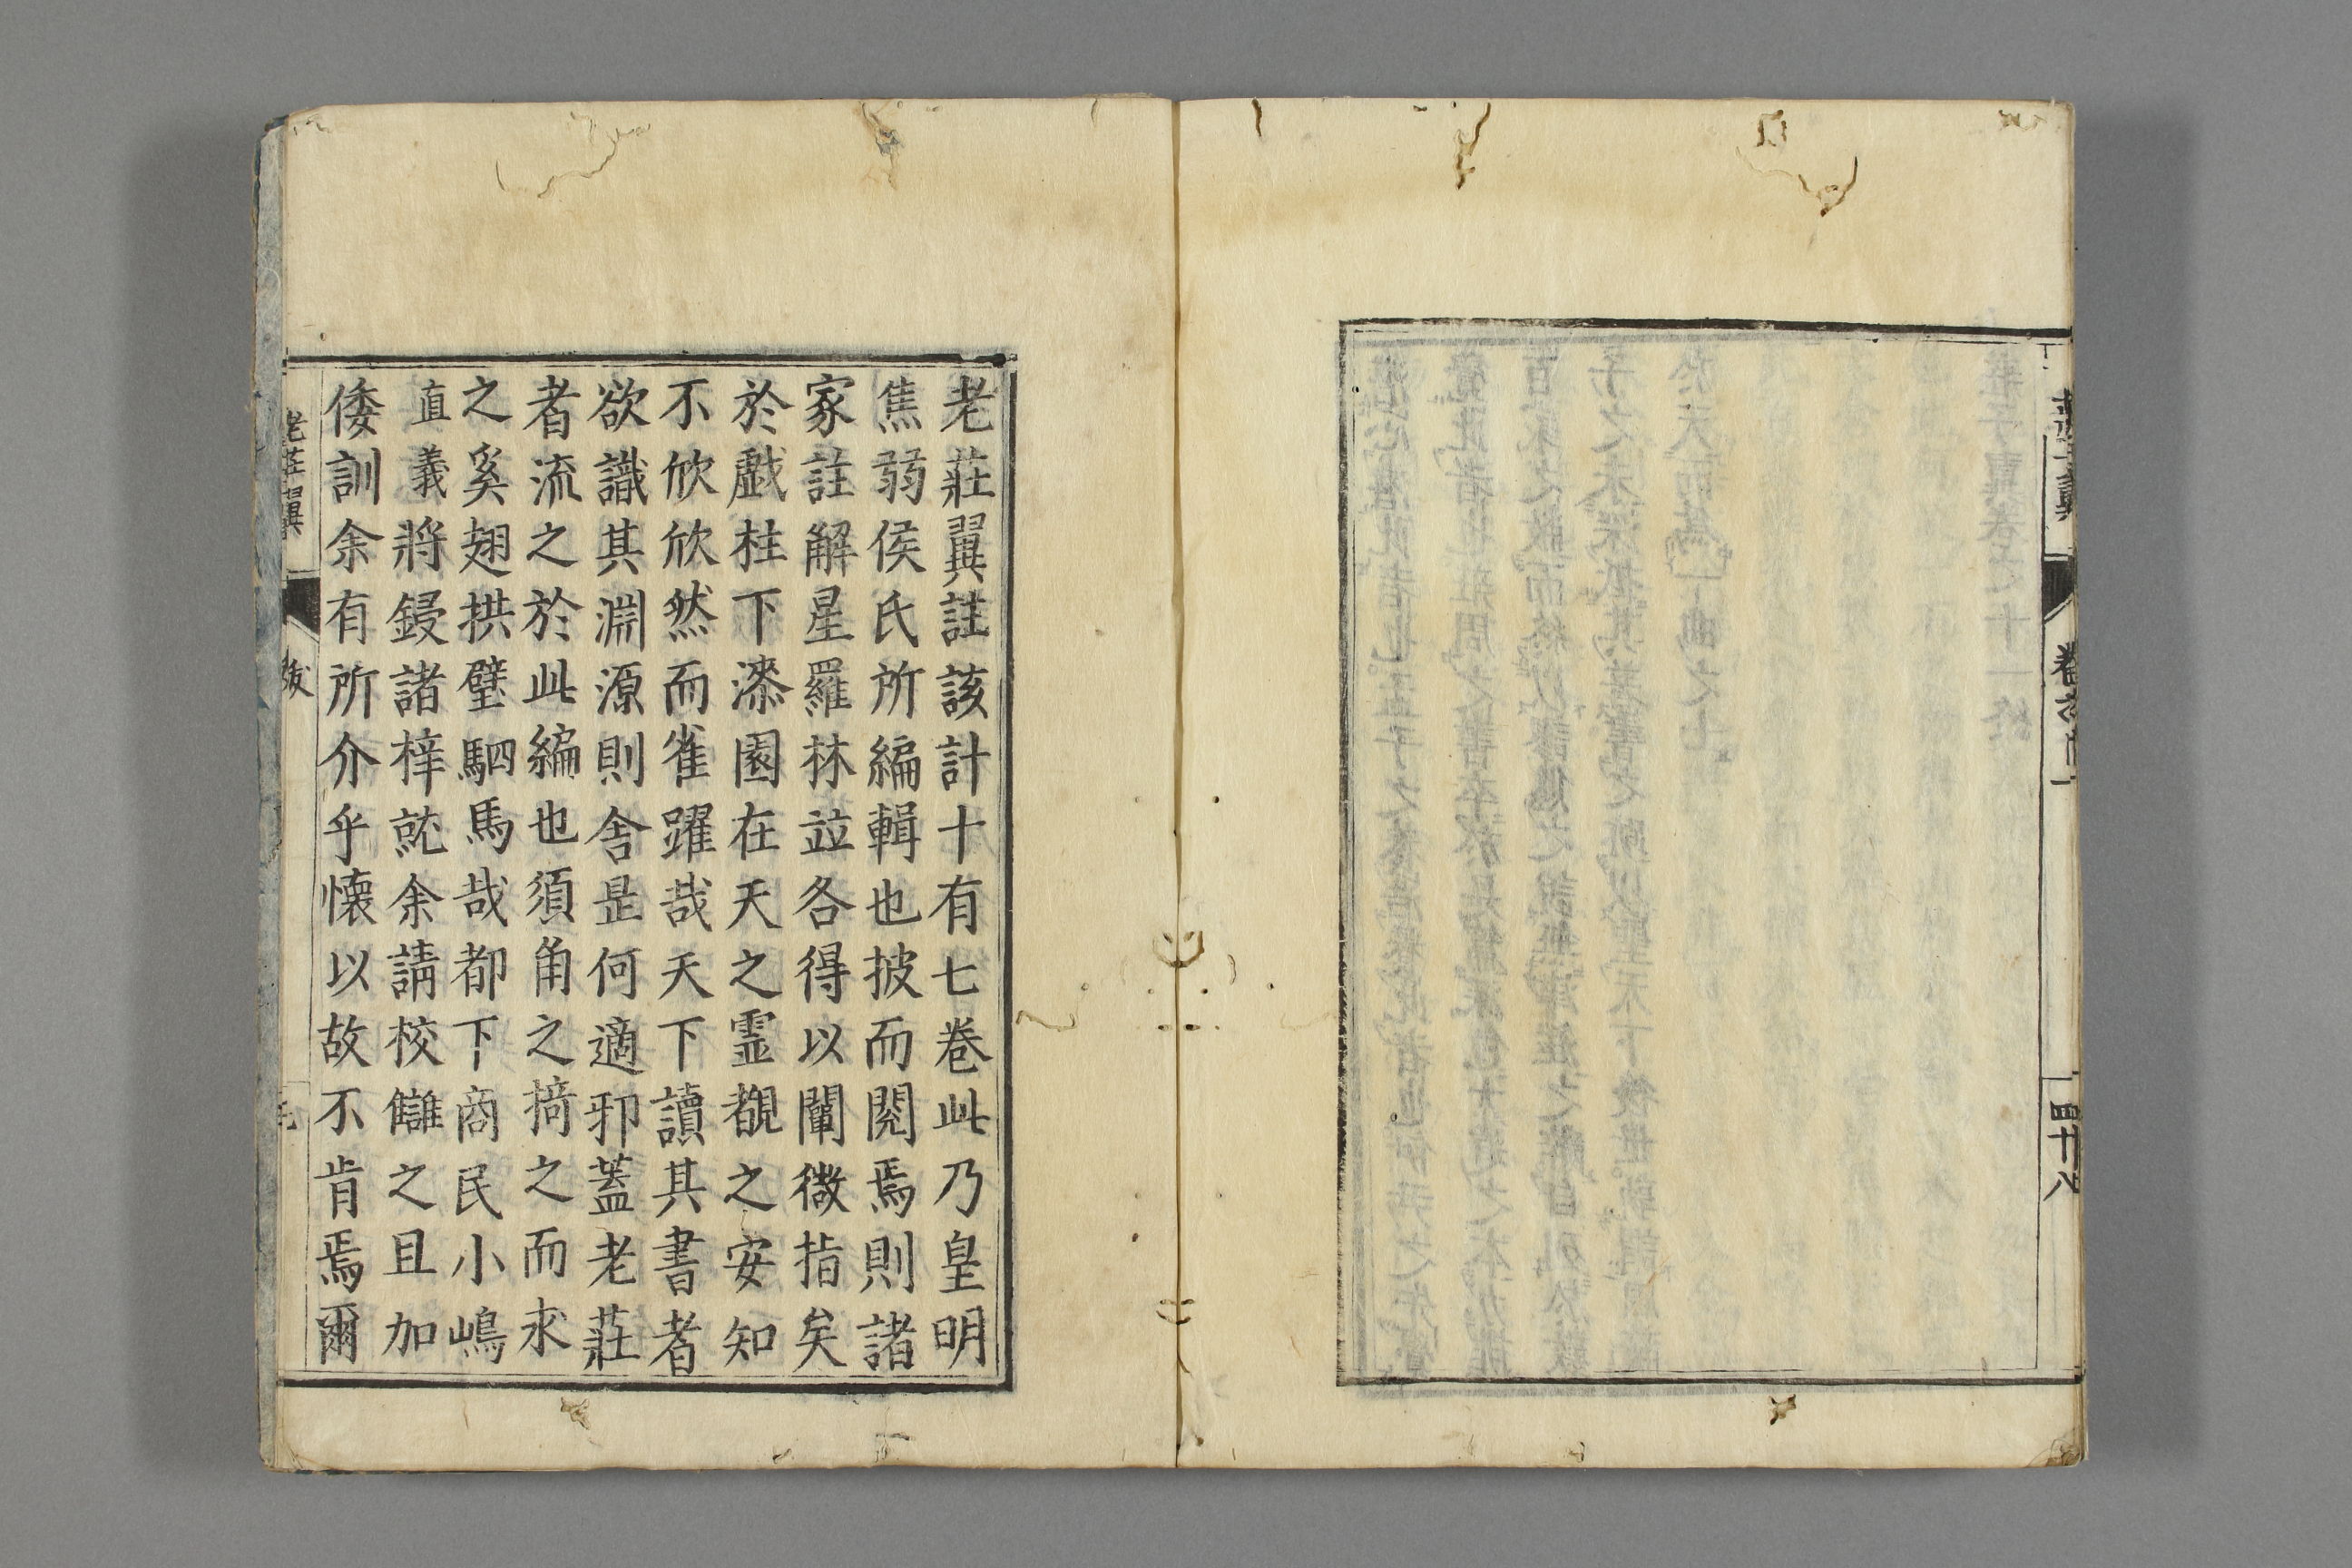 莊子翼
四十八
老莊翼註該計十有七卷此乃皇明
焦弱侯氏所編輯也披而閱焉則諸
家註解星羅林竝各得以闡微指矣
於戲柱下漆園在天之霊覩之安知
不欣欣然而雀躍哉天下讀其書者
欲識其淵源則舍是何適邪蓋老莊
者流之於此編也須角之掎之而求
之奚翅拱璧駟馬哉都下商民小嶋
直義將鋟諸梓就余請校讎之且加
倭訓余有所介乎懷以故不肯焉爾
老莊翼 跋